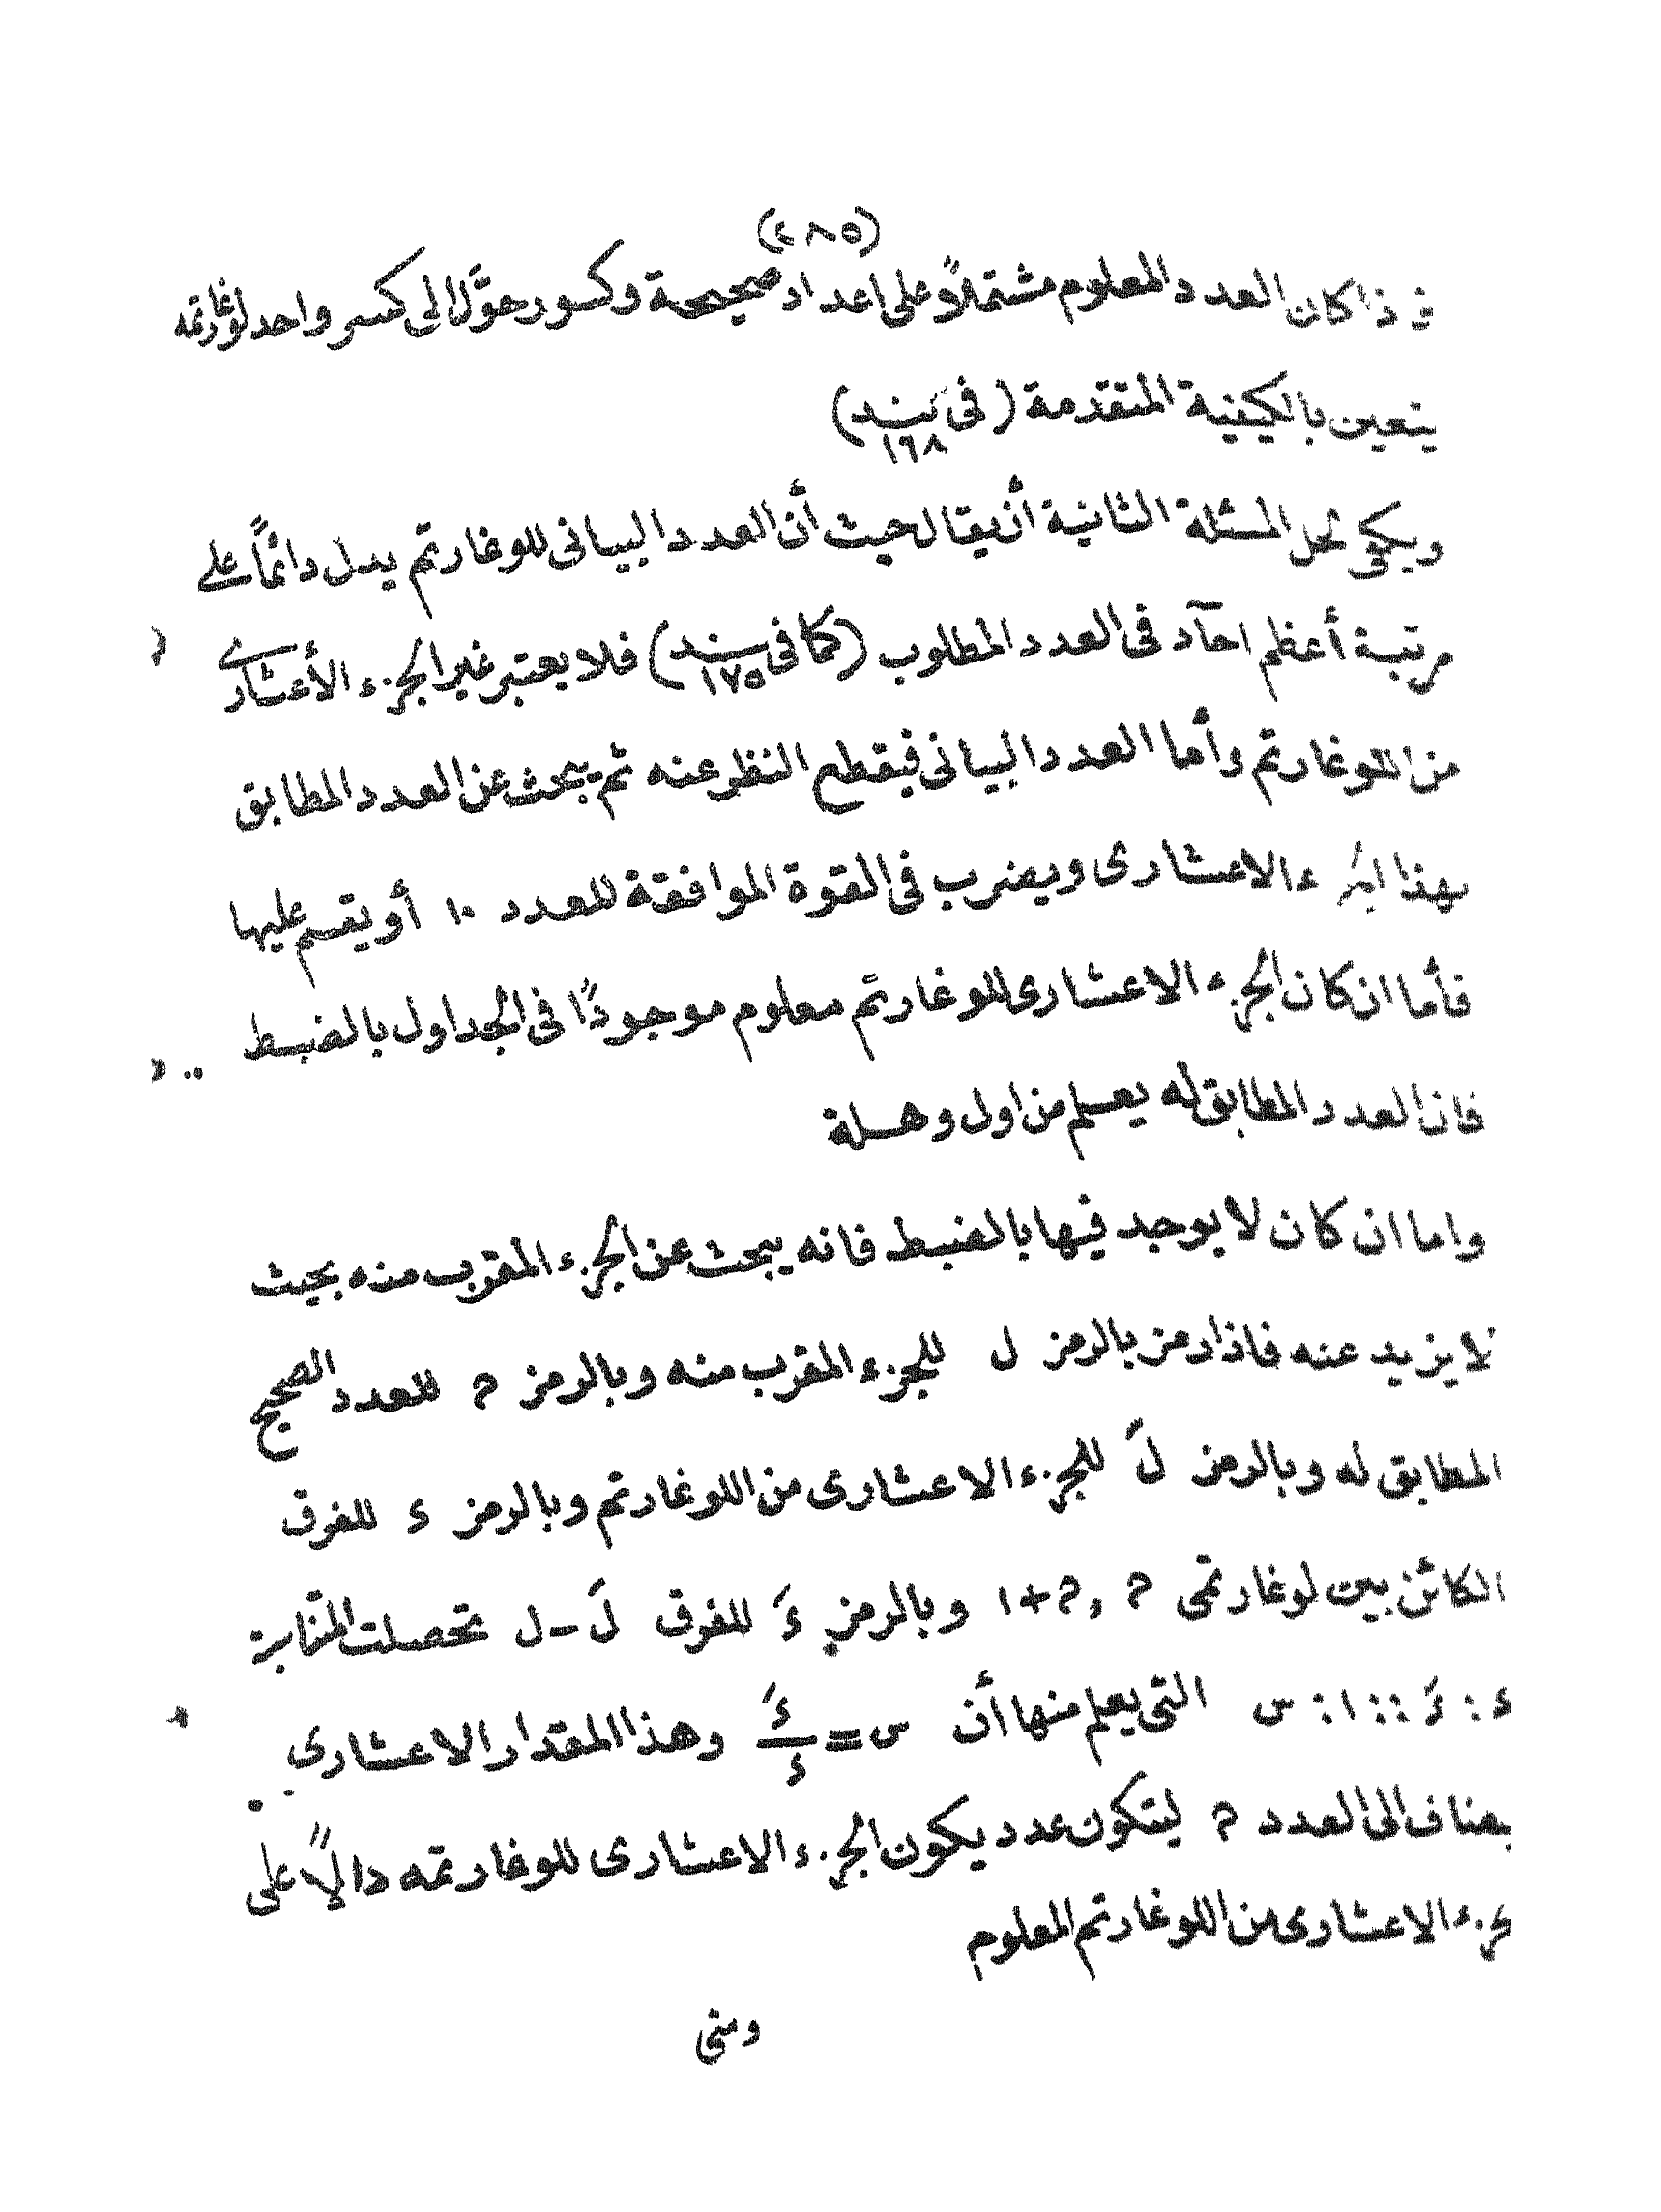 (٢٨٥)
ذا كان العدد المعلوم مشتملاً على اعداد صحيحة وكسور حوّل الى كسر واحد لوغارتمه
يتعين بالكيفية المتقدمة (فى بند ١٦٨)
ويكفى لحل المسئلة الثانية أن يقال حيث أن العدد البيانى للوغارتم يدل دائماً على
مرتبة أعظم احآد فى العدد المطلوب (كما فى بند ١٧٥) فلا يعتبر غير الجزء الأعشارى
من اللوغارتم وأما العدد البيانى فيقطع النظر عنه ثم يبحث عن العدد المطابق
بهذا الجزء الاعشارى ويضرب فى القوة الموافقة للعدد ١٠ أو يقسم عليها
فأما ان كان الجزء الاعشارى للوغارتم معلوم موجودًا فى الجداول بالضبط
فان العدد المطابق له يعلم من اول وهلة
واما ان كان لا يوجد فيها بالضبط فانه يبحث عن الجزء المقرب منه بحيث
لا يزيد عنه فاذا رمز بالرمز ل للجزء المقرب منه وبالرمز م للعدد الصحيح
المطابق له وبالرمز لَ للجزء الاعشارى من اللوغارتم وبالرمز ء للفرق
الكائن بين لوغارتمى م , م+١ وبالرمز ءَ للفرق لَ-ل تحصلت المتزايدة
ء : ءَ :: ١ : س التى يعلم منها أن س = ءَ/ء وهذا المقدار الاعشارى
يضاف الى العدد م ليتكون عدد يكون الجزء الاعشارى للوغارتمه دالاً على
لجزء الاعشارى من اللوغارتم المعلوم
ومتى